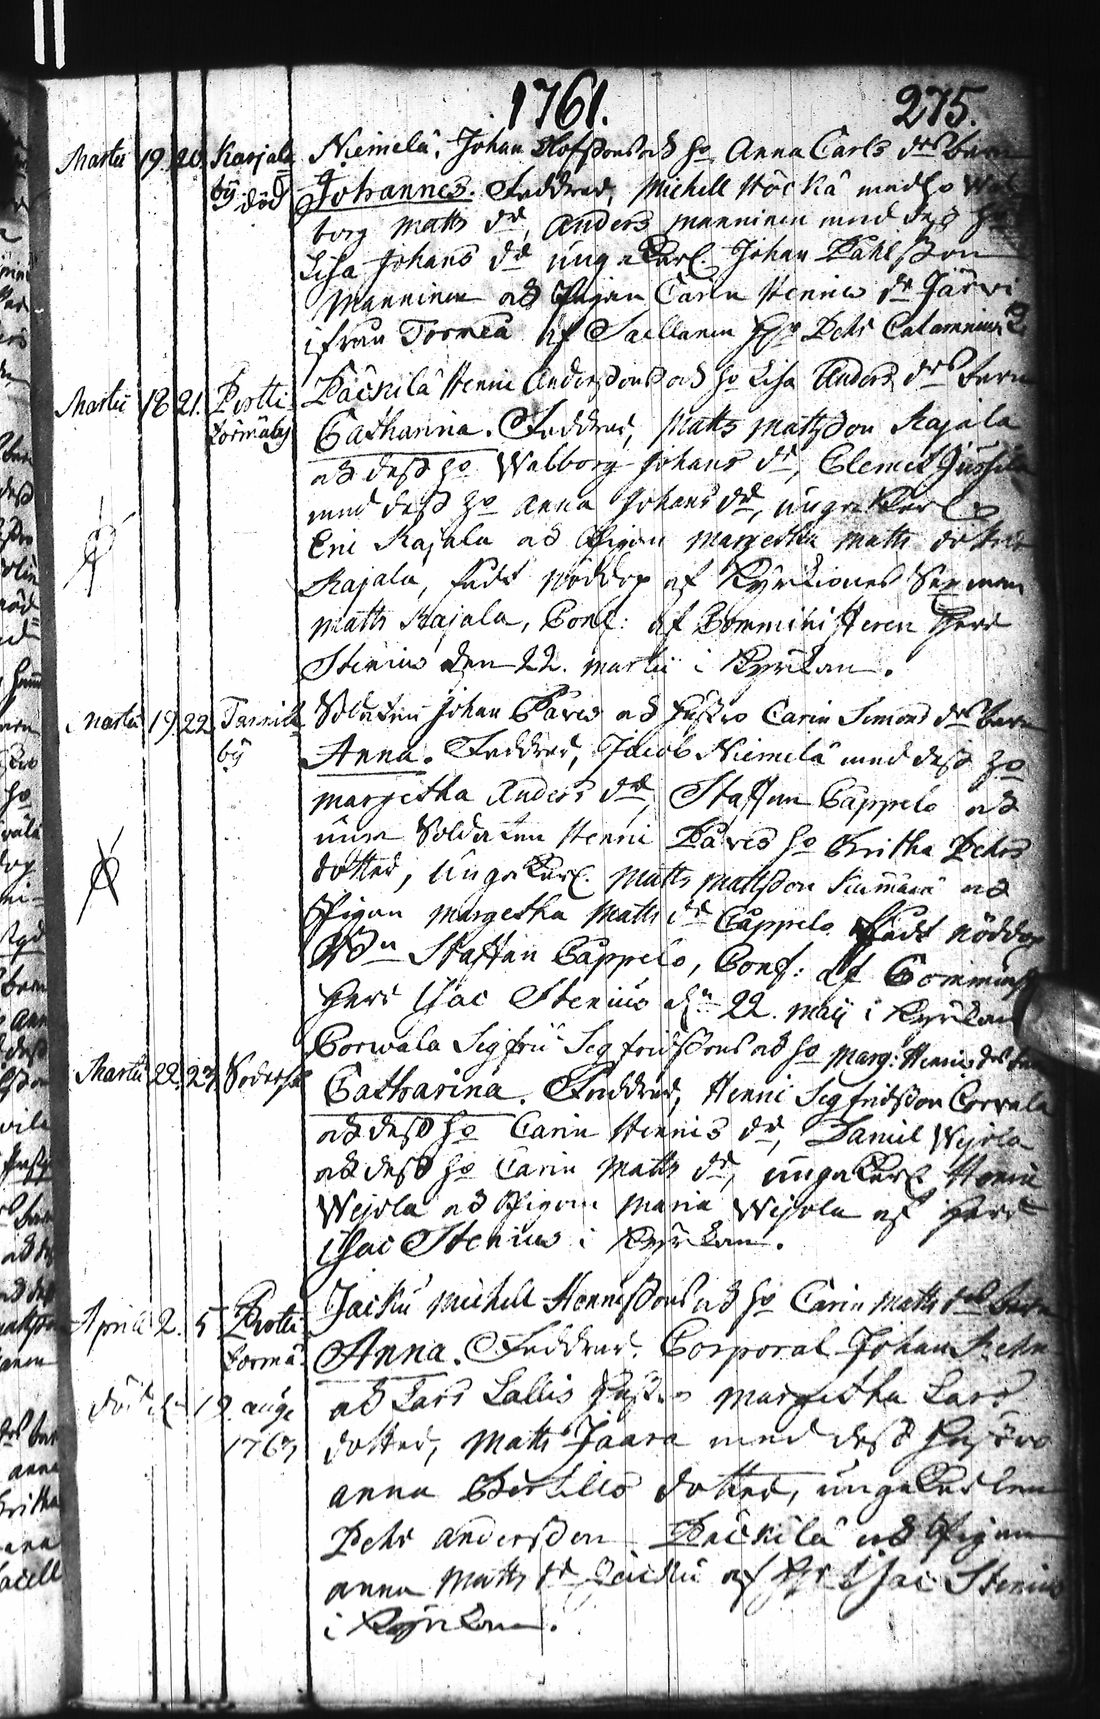 1761. 275.
Martii 19. 20. Karjala Niemelä, Johan Olofssons och ho Anna Carls drs barn
by död Johannes. Faddrar, Michell Höckä med ho Wal
borg Matts dr, Anders Manninen med dess ho
Lisa Johans dr unga Karl. Johan Påhlsson
Manninen och Pigan Carin Hennis dr Järvi
ifrån Torneå af Sacellanen Hr Pehr Calamnius
Martii 18 21. Protti Päckilä Henric Anderssons och ho Lisa Anders drs barn
Tormäby Catharina. Faddrar, Matts Mattsson Rajala
och dess ho Walborg Johans dr, Clemet Jussila
med dess ho Anna Johans dr, unga Karl
Eric Rajala och Pigan Margetha Matts dotter
Rajala, fadt nöddop af Kyrkiones Sexman
Matts Rajala, Conf: af Comministeren Herr
Stenius den 22. Martii i Kyrkan.
Martii 19 22 by Soldaten Johan Päres och hustro Carin Simons drs barn
Anna. Faddrar, Jacob Niemelä med dess ho
Margetha Anders dr, Staffan Cappelo och
Soldaten Henric Päres ho Britha Pehrs
dotter, unga Karl. Matts Mattsson och
Pigan Margetha Matts dr Cappelo fadt nöddop
Staffan Cappelo, Conf: af Comminist
Herr Isac Stenius dn 22. Maij i Kyrkan
Martii 22. 23. Corwala Sigfrid Sigfridssons och ho Marg: Hennis drs barn
Catharina. Faddrar, Henric Sigfridsson Corvala
och dess ho Carin Hennis dr, Daniel Wejola
och dess ho Carin Matts dr, unga Karl Henric
Wejola och Pigan Maria Wejola af Herr
Isac Stenius i Kyrkan.
Aprill 2. 5 Protti Jacku Michell Hennissons och ho Carin Matts drs barn
Tormä. Anna. Faddrar. Corporal Johan Rehn
död d. 19. aug. och Lars Lallis hustro Margetha Lars
1763 dotter, Matts Jaara med dess hustro
Anna Bertills dotter, unga Karlen
Pehr Andersson Päckilä och Pigan
Anna Matts dr Jacku af Hr Isac Stenius
i Kyrkan.